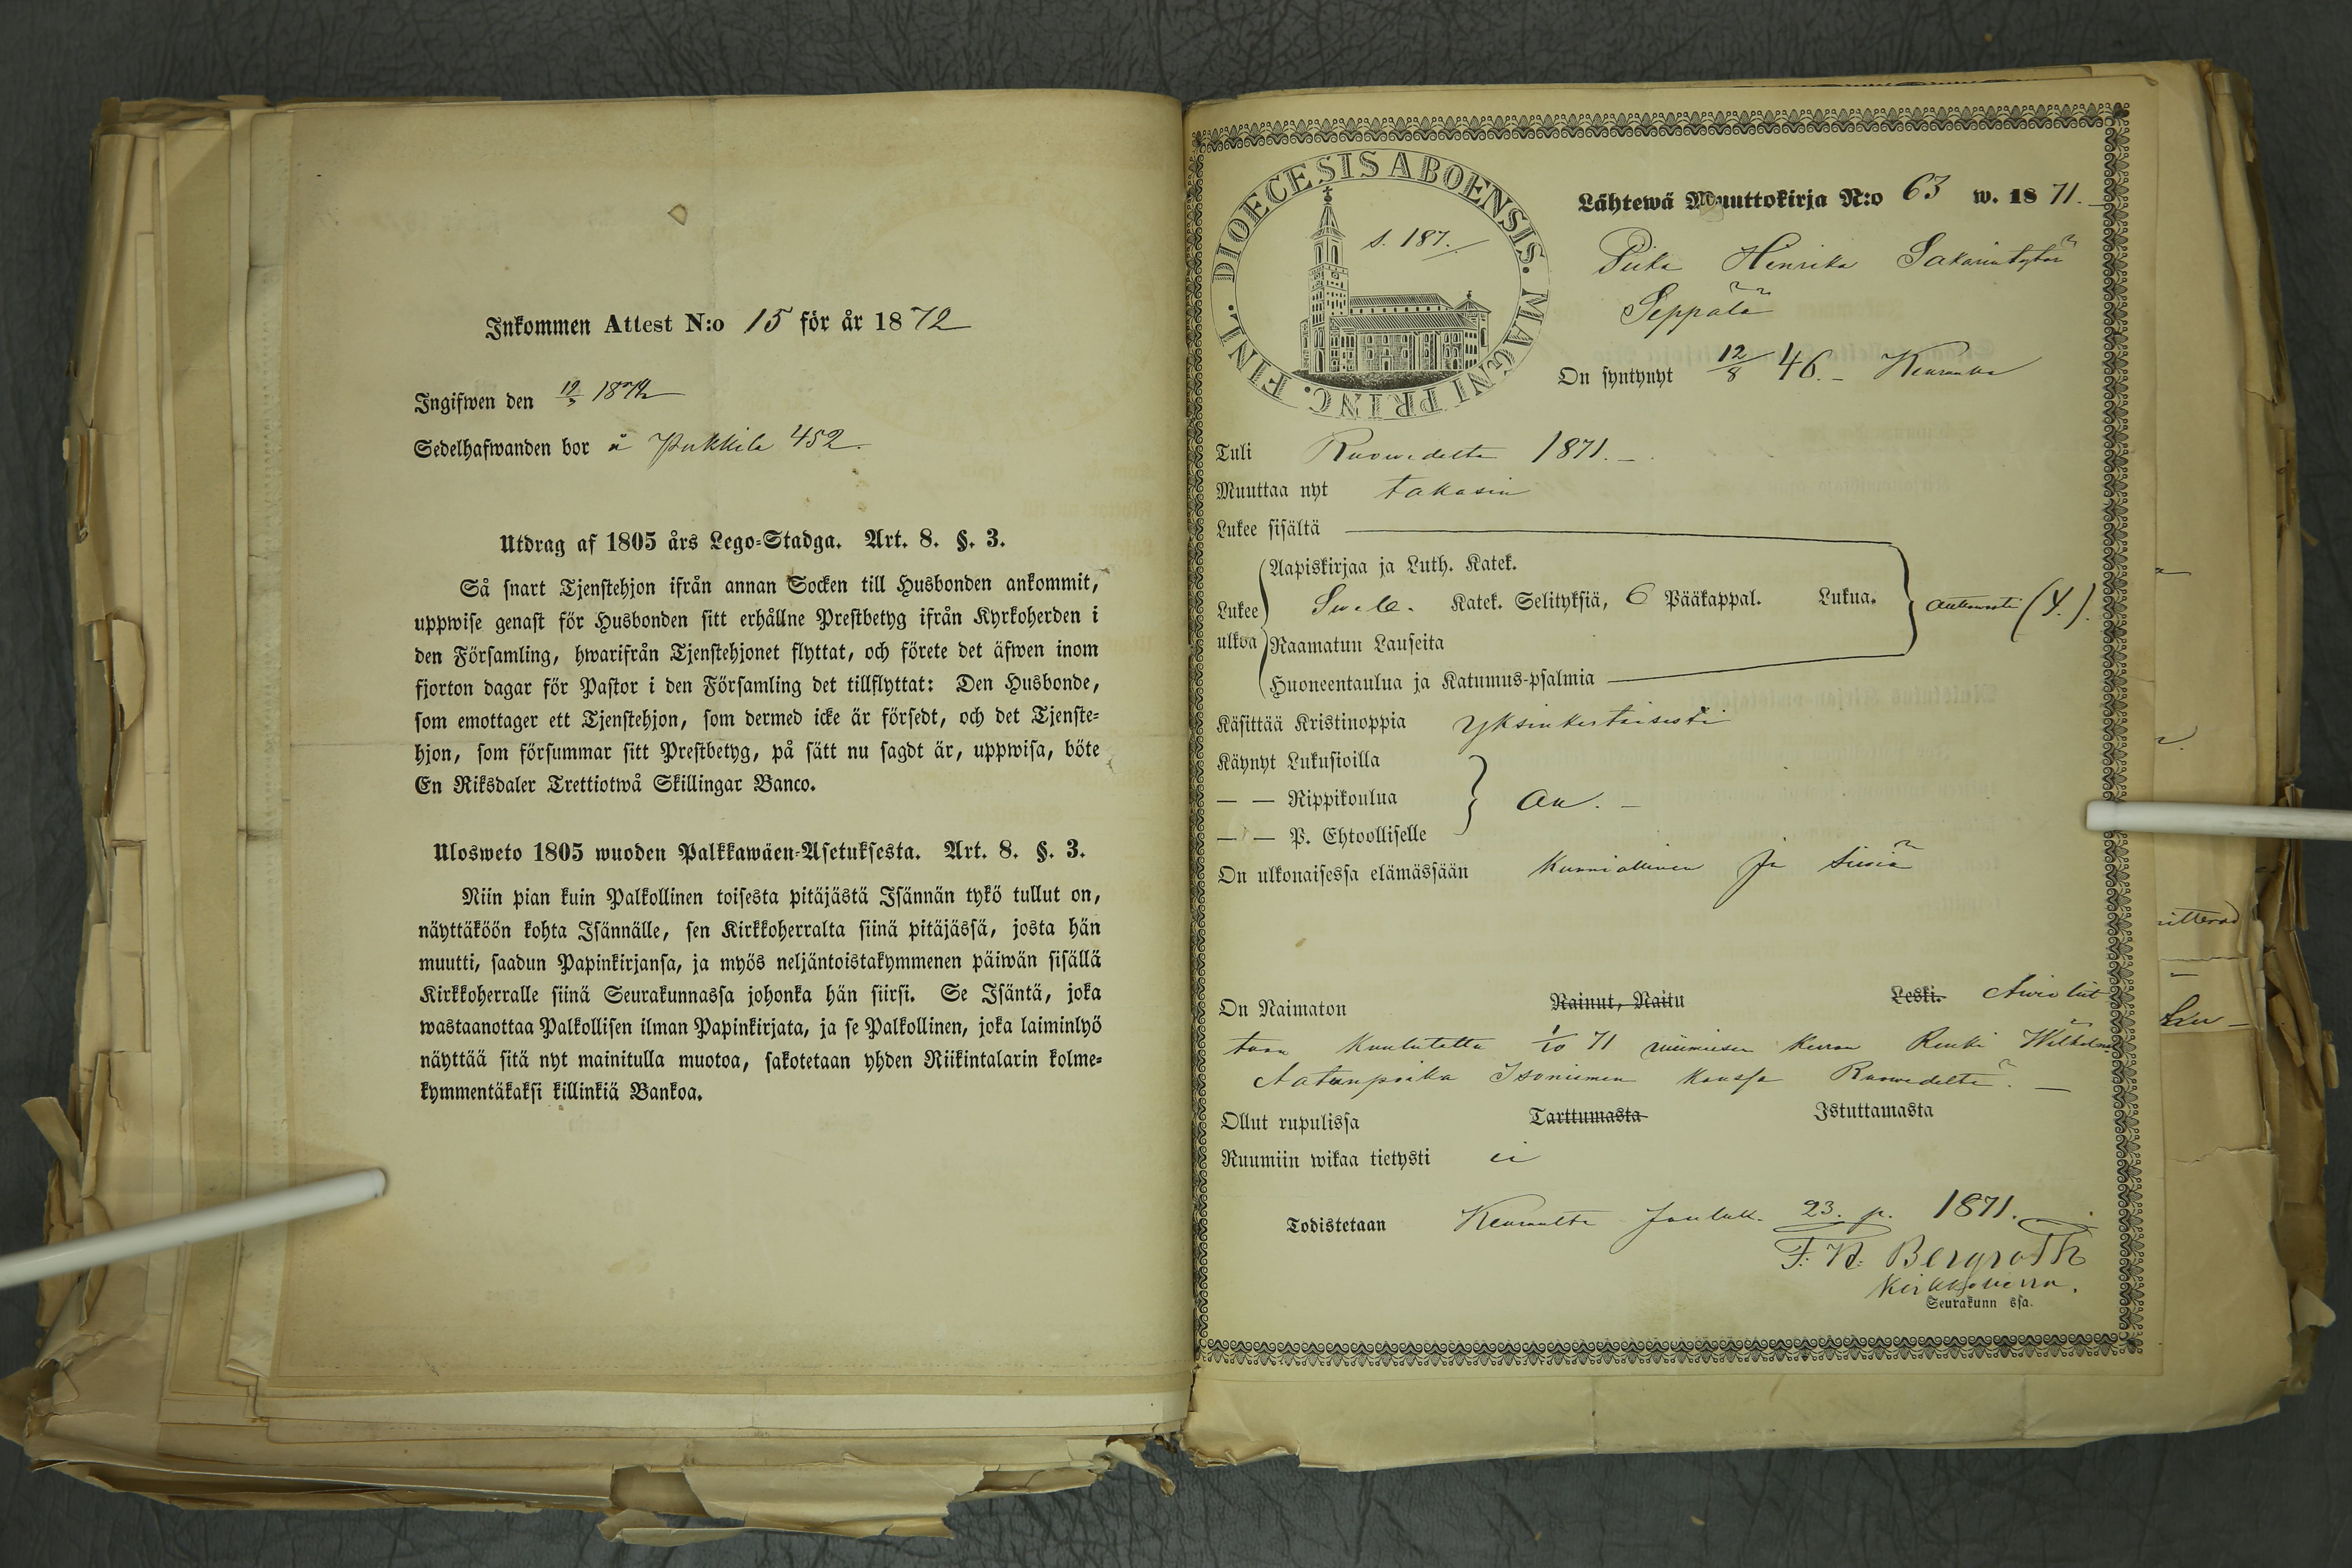 Inkommen Attest N:o 15 för år 1872
Ingifwen den
Sedelhafwanden bor å Pukkila 452.
Utdrag af 1805 års Lego-Stadga. Art. 8. §. 3.
Så snart Tjenstehjon ifrån annan Socken till Husbonden ankommit,
uppwise genast för Husbonden sitt erhållne Prestbetyg ifrån Kyrkoherden i
den Församling, hwarifrån Tjenstehjonet flyttat, och förete det äfwen inom
fjorton dagar för Pastor i den Församling det tillflyttat: Den Husbonde,
som emottager ett Tjenstehjon, som dermed icke är försedt, och det Tjenste-
hjon, som försummar sitt Prestbetyg, på sätt nu sagdt är, uppwisa, böte
En Riksdaler Trettiotwå Skillingar Banco.
Ulosweto 1805 wuoden Palkkawäen-Asetuksesta. Art. 8. §. 3.
Niin pian kuin Palkollinen toisesta pitäjästä Isännän tykö tullut on,
näyttäköön kohta Isännälle, sen Kirkkoherralta siinä pitäjässä, josta hän
muutti, saadun Papinkirjansa, ja myös neljäntoistakymmenen päiwän sisällä
Kirkkoherralle siinä Seurakunnassa johonka hän siirsi. Se Isäntä, joka
wastaanottaa Palkollisen ilman Papinkirjata, ja se Palkollinen, joka laiminlyö
näyttää sitä nyt mainitulla muotoa, sakotetaan yhden Riikintalarin kolme-
kymmentäkaksi killinkiä Bankoa.
DIOECESIS ABOENSIS. MAGNI PRINC. FINL.
s. 187.
Lähtewä Muuttokirja N:o 63 w. 1871.
Piika Henrika Sakarintytär
Seppälä
On syntynyt 12/8 46. Keuruulla
Tuli Ruowedeltä 1871.
Muuttaa nyt takasin
Lukee sisältä
Aapiskirjaa ja Luth. Katek.
Lukee Katek. Selityksiä, 6 Pääkappal. Lukua. auttawasti
ulkoa Raamatun Lauseita
Huoneentaulua ja Katumus-psalmia
Käsittää Kristinoppia yksinkertaisesti
Käynyt Lukusioilla
— — Rippikoulua on.
— — P. Ehtoolliselle
On ulkonaisessa elämässään kunniallinen ja siwiä
On Naimaton Nainut, Naitu Leski. Awioliit-
toon kuulutettu 1/10 71 wiimeisen kerran Renki Wilhelm
Aatunpoika Isoniemen kanssa Ruowedeltä.
Ollut rupulissa Tarttumasta Istuttamasta
Ruumiin wikaa tietysti ei
Todistetaan Keuruulta Jouluk. 23. p. 1871.
Bergroth
Kirkkoherra.
Seurakunn ssa.